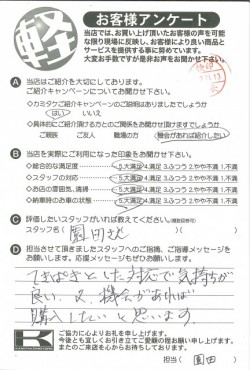 軽
お客様アンケート
当店では、お買い上げ頂いたお客様の声を可能
な限り現場に反映し、お客様により良い商品と
サービスを提供する事に努めています。
大変お手数ですが是非お声をお聞かせ下さい。
A 当店はご紹介を大切にしております。
ご紹介キャンペーンについてお聞かせ下さい。
◇カミタケご紹介キャンペーンのご説明はありましたでしょうか
はい いいえ
◇具体的にご紹介頂けるかたとのご関係をお聞かせ頂けますでしょうか
ご親族 ご友人 職場の方 機会があれば紹介したい
B 当店を実際にご利用になった印象をお聞かせ下さい。
◇総合的な満足度 5.大満足 4.満足 3.ふつう 2.やや不満 1.不満
◇スタッフの対応 5.大満足 4.満足 3.ふつう 2.やや不満 1.不満
◇お店の雰囲気、清掃 5.大満足 4.満足 3.ふつう 2.やや不満 1.不満
◇納車時のお車の状態 5.大満足 4.満足 3.ふつう 2.やや不満 1.不満
C 評価したいスタッフがいれば教えてください。(複数回答可)
スタッフ名( 園田さん )( )( )
D 担当させて頂きましたスタッフへのご指摘、ご指導メッセージをお
願いします。応援メッセージもぜひお願いします。
てきぱきとした対応で気持ちが
良い。又、機会があれば
購入したいと思います。
K
ご協力に心よりお礼を申し上げます。
今後とも宜しくお引き立てご愛顧の程お願い申し上げます。
またのご来店を心からお待ちしております。
担当( 園田 )